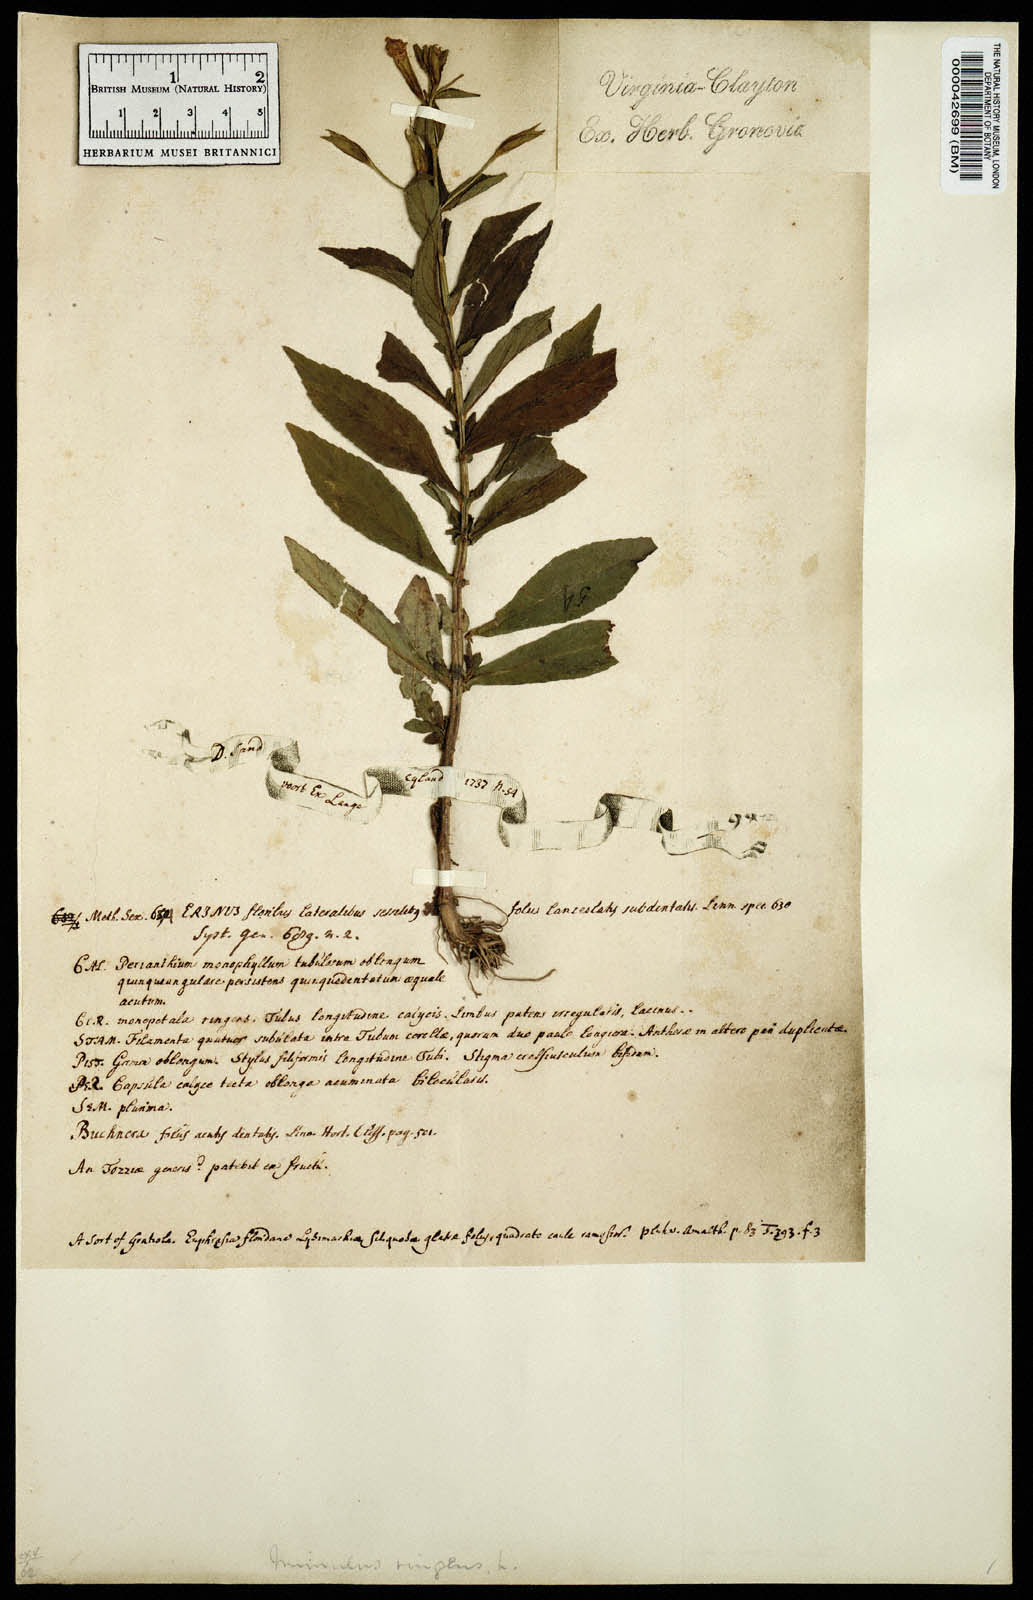 1 2
BRITISH MUSEUM (NATURAL HISTORY)
1 2 3 4 5
HERBARIUM MUSEI BRITANNICI
Virginia-Clayton
Ex. Herb. Gronovia
THE NATURAL HISTORY MUSEUM, LONDON
DEPARTMENT OF BOTANY
000042699 (BM)
54
D. Sand
voort Ex
Lange
1737 N. 54
Meth. Sex. ERINUS floribus lateralibus sessilib9 foliis lanceolatis subdentatis. Linn. spec. 630
Syst. Gen. n. 2.
CAL. Perianthium monophyllum tubulosum oblongum
quinquangulare persistens quinquedentatum æquale
acutum.
COR. monopetala ringens. Tubus longitudine calycis. Limbus patens irregularis,
STAM. Filamenta quatuor subulata intra Tubum corollæ, quorum duo paulo longiora. Antheræ in altero pari duplicatæ.
PIST. Germen oblongum. Stylus filiformis longitudine Tubi. Stigma crassiusculum bifidum.
PER. Capsula calyce tecta oblonga acuminata bilocularis.
SEM. plurima.
Buchnera foliis acutis dentatis. Linn. Hort. Cliff. pag. 501.
An Tozziæ generis? patebit ex fructu.
A sort of Euphrasia floridana Lysimachiæ siliquosæ glabræ foliis, quadrato caule ramosior. Pluk. Amalth. p. 83 T. 393. f. 3
Mimulus ringens, L.